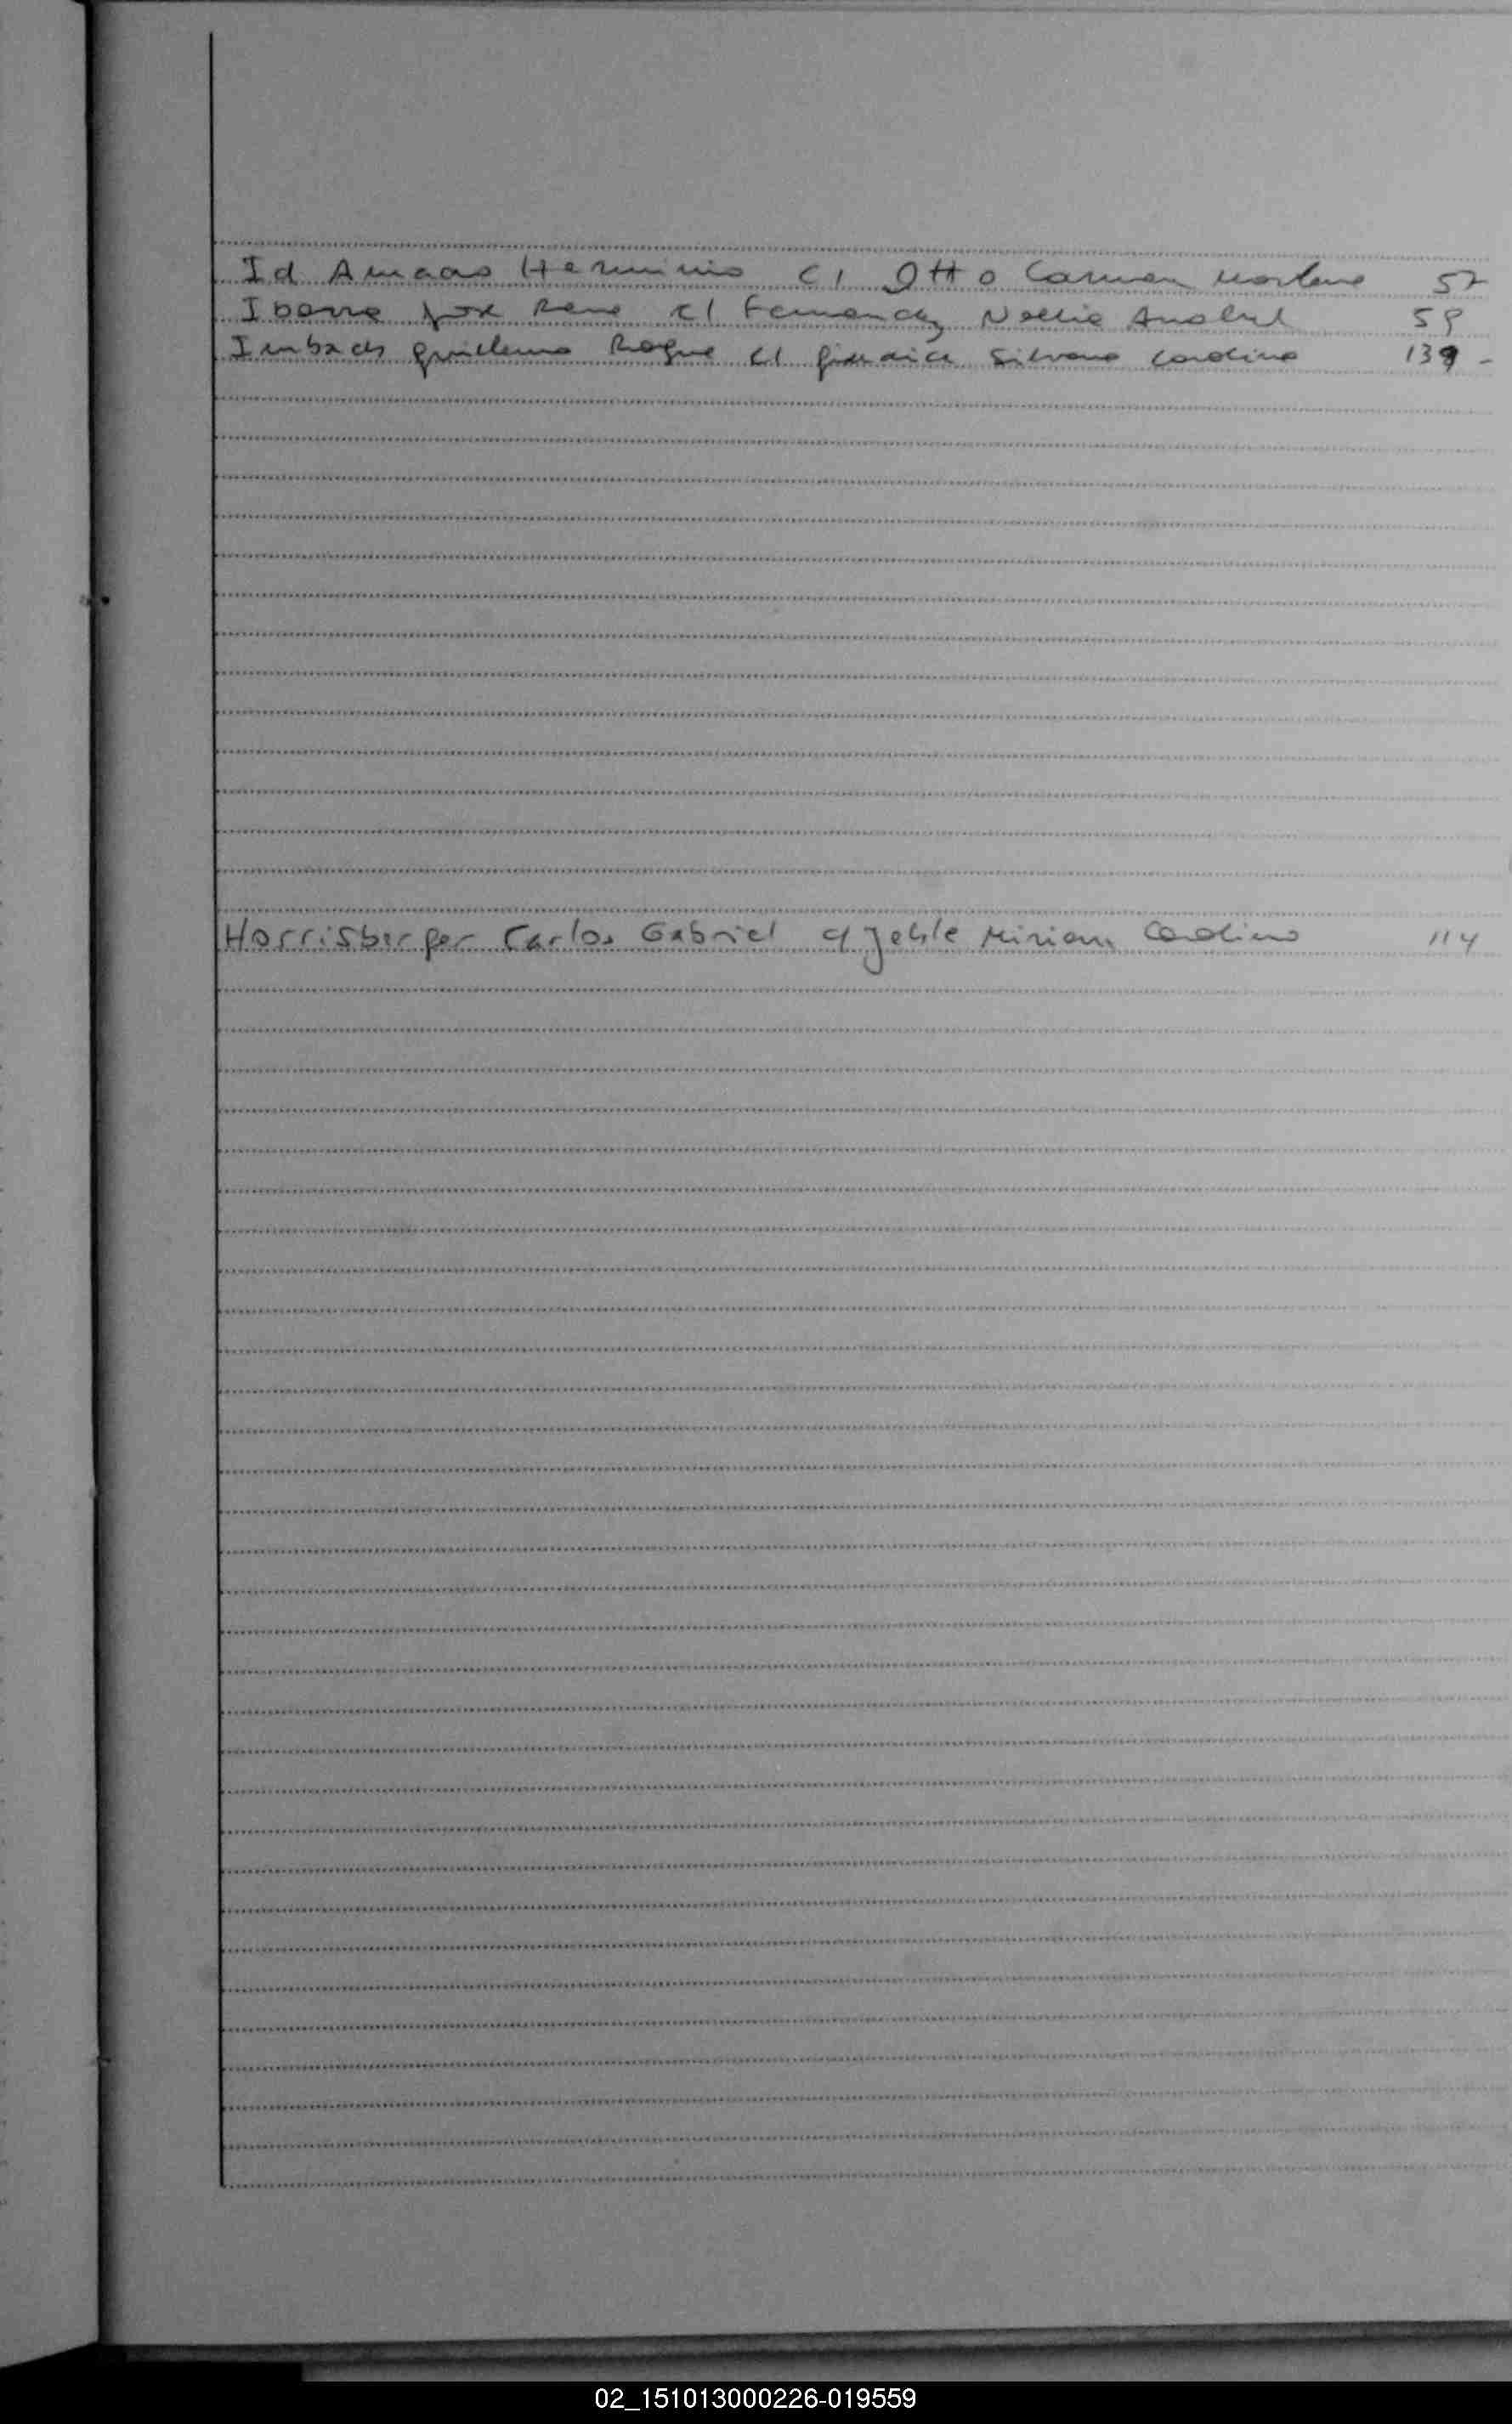 Id Amado Herminio c/ Otto Carmen Marlene 57
Ibarra Jose Rene c/ Fernandez Nellie Anabel 59
Imbach Guillermo Roque c/ Silvana Carolina 139 -
Horrisberger Carlos Gabriel c/ Jehle Miriam Carolina 114
02_151013000226-019559